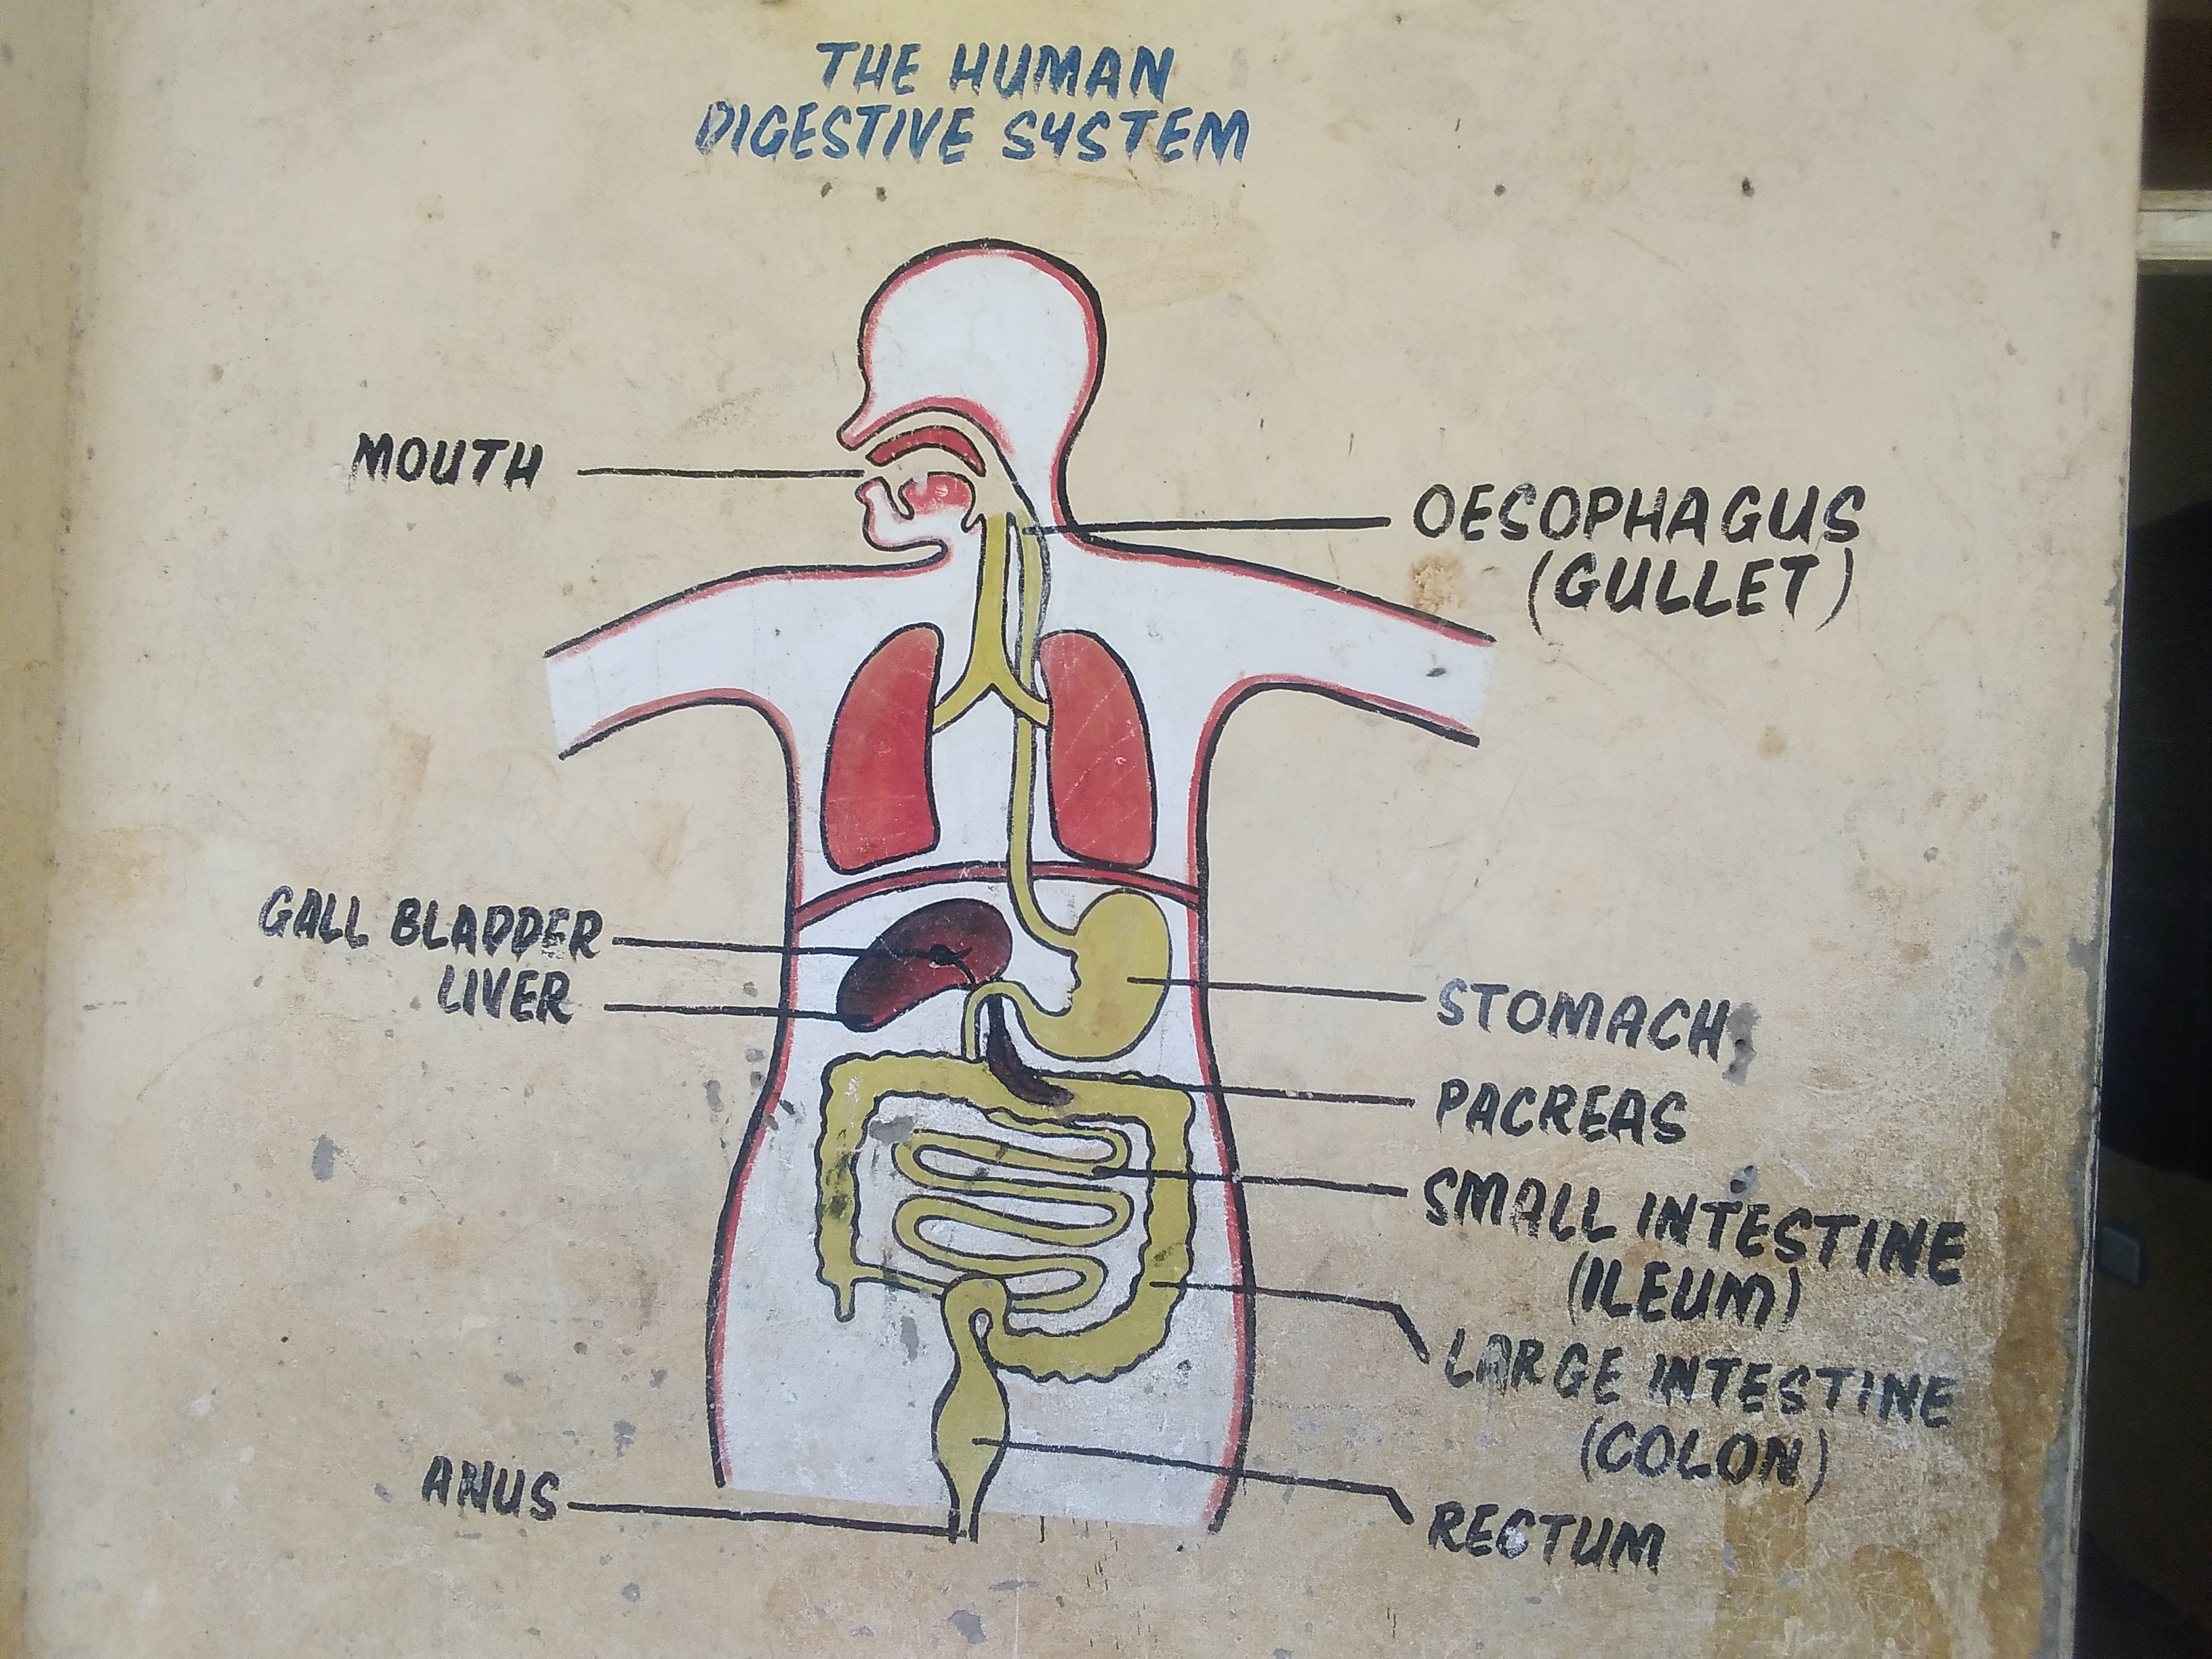 THE HUMAN
DIGESTIVE SYSTEM
MOUTH
OESOPHAGUS
(GULLET)
GALL BLADDER
LIVER
STOMACH
PACREAS
SMALL INTESTINE
(ILEUM)
LARGE INTESTINE
(COLON)
ANUS
RECTUM